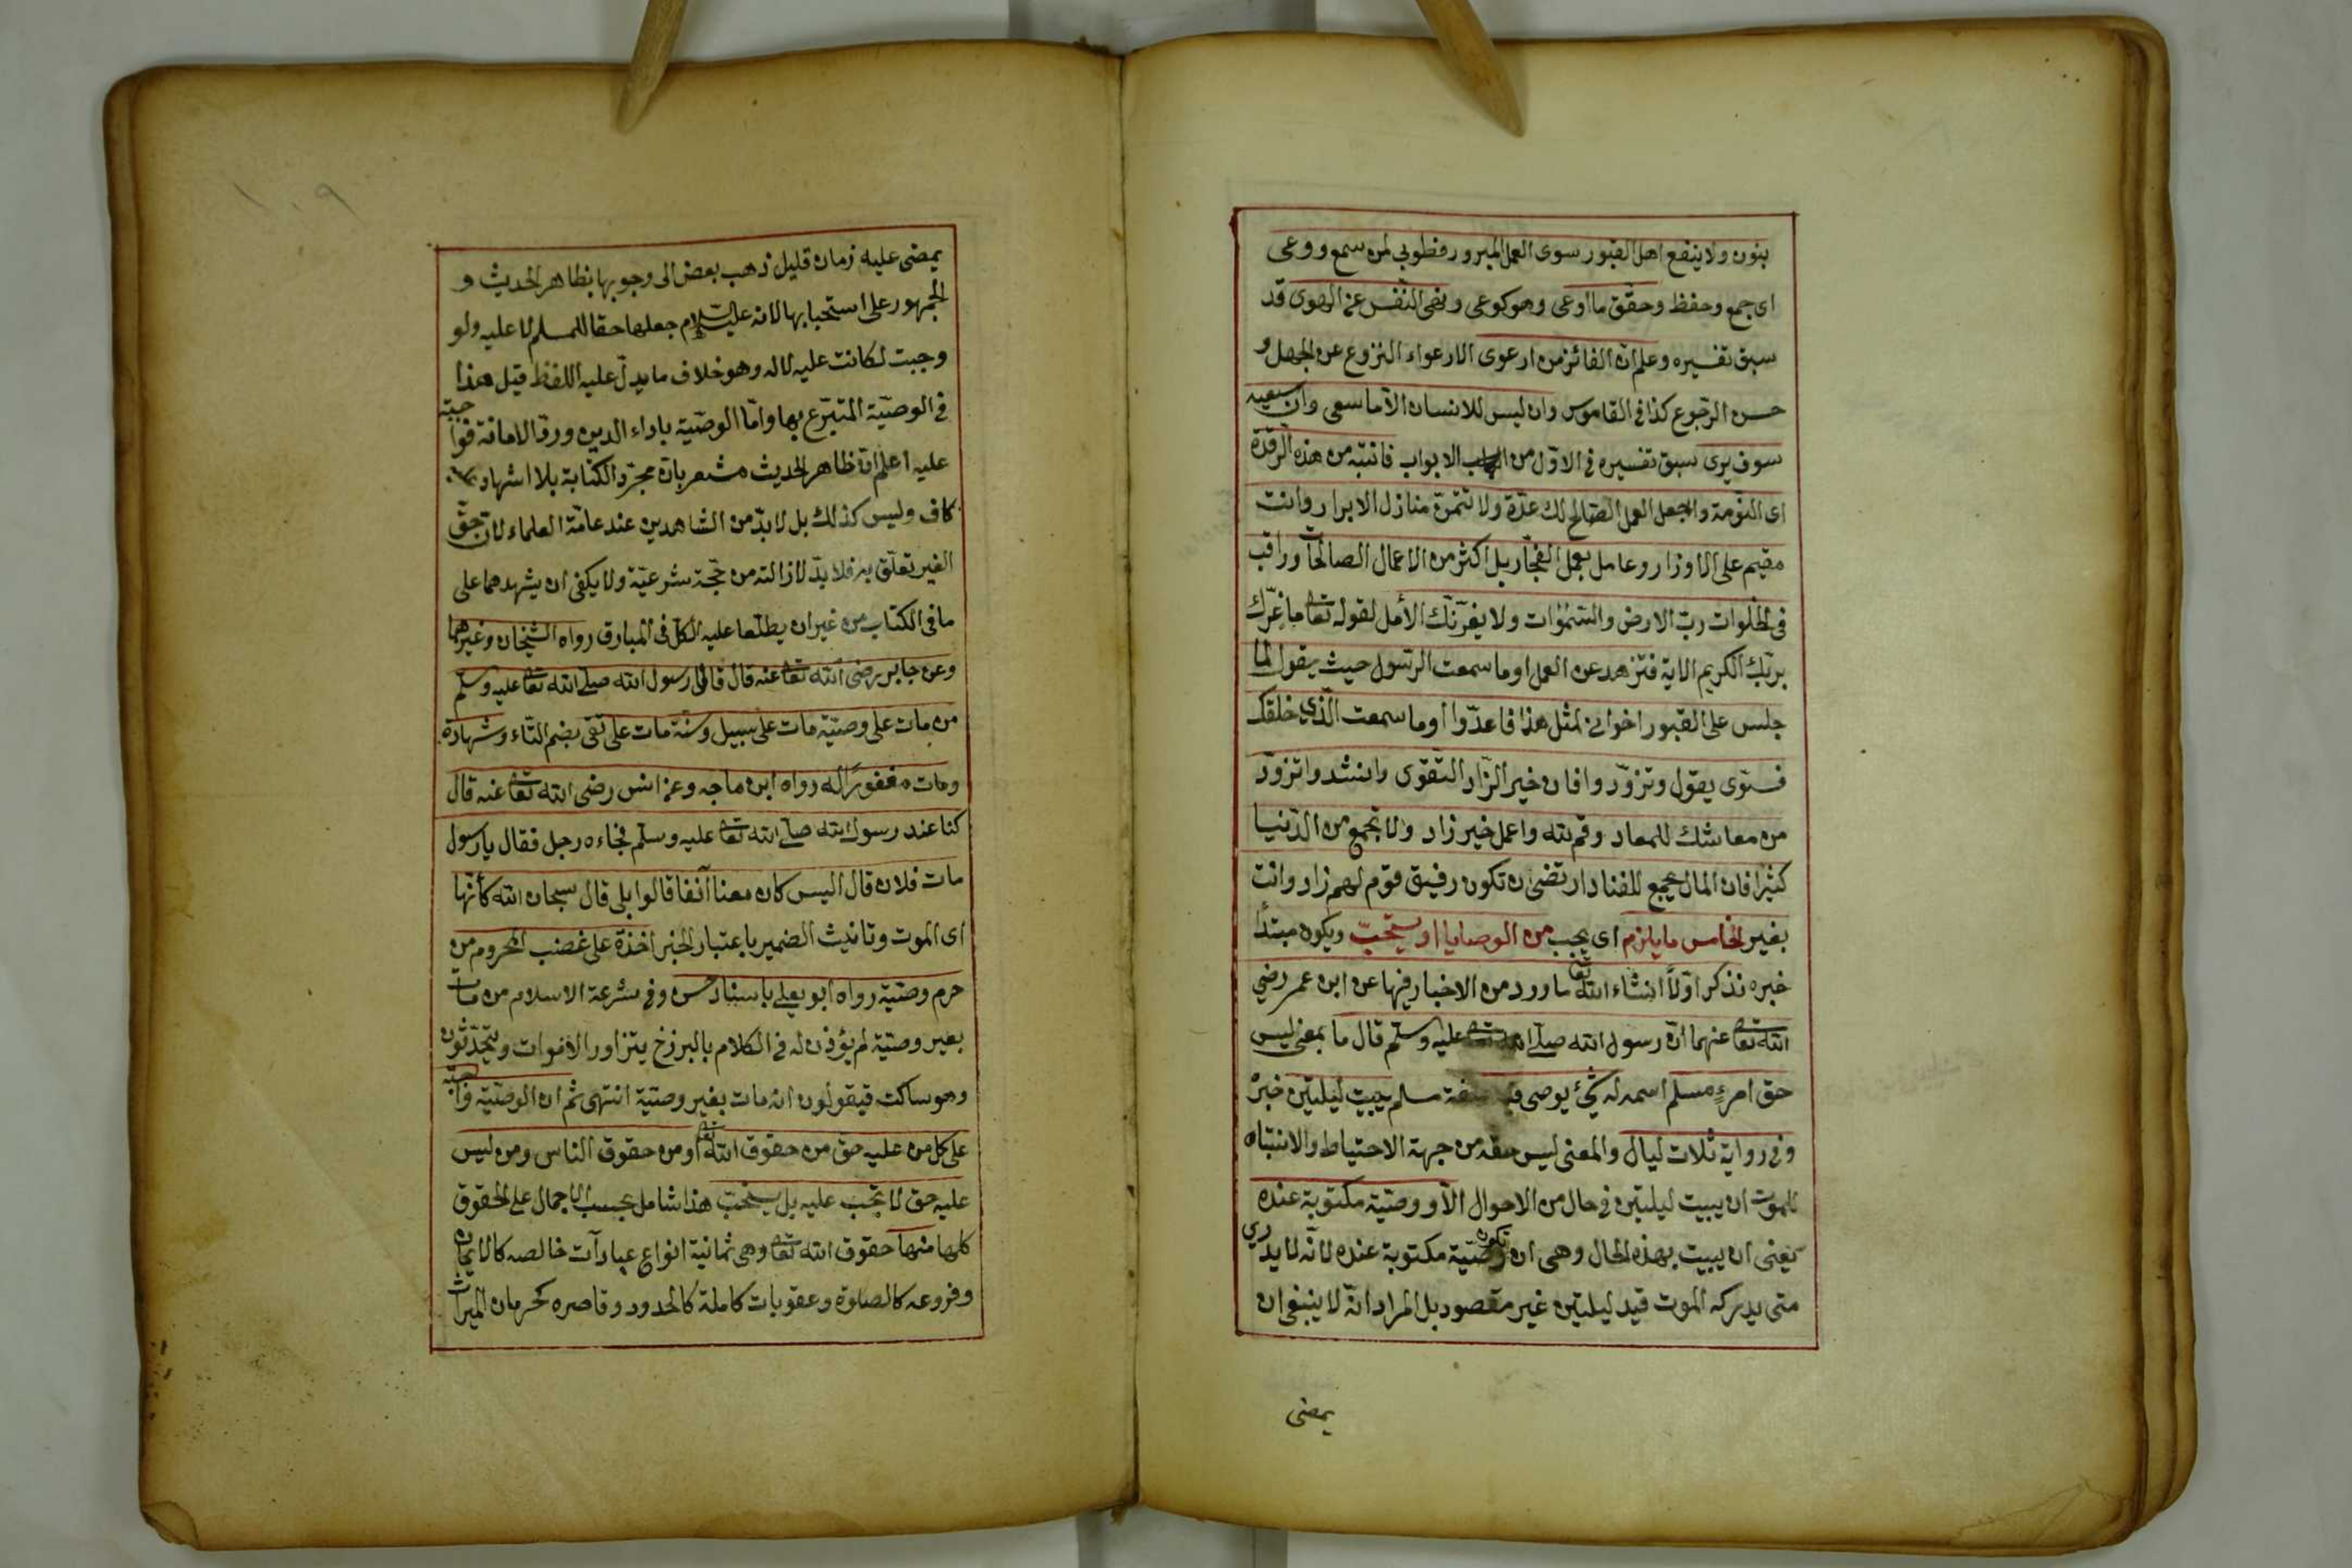 بنون ولا ينفع اهل القبور سوى العمل المبرور فطوبى لمن سمع ووعى
اى جمع وحفظ وحقّق ما اوعى وهو كوعى ونهى النّفس عن الهوى قد
سبق تفسيره وعلم انّ الفائز من ارعوى الارعواء النزوع عن الجهل و
حسن الرّجوع كذا فى القاموس وان ليس للانسان الّا ما سعى وان سعيه
سوف يرى سبق تفسيره فى الاوّل من الابواب فانتبه من هذه الرقدة
اى النّومة واجعل العمل الصّالح لك عدّة ولا تتمنّ منازل الابرار وانت
مقيم على الاوزار وعامل بعمل الفجّار بل اكثر من الاعمال الصالحات وراقب
فى الخلوات ربّ الارض والسّمٰوات ولا يغرّنّك الأمل لقوله تعا ما غرّك
بربّك الكريم الاية فتزهد عن العمل اوما سمعت الرّسول حيث يقول لما
جلس على القبور اخوانى لمثل هذا فاعدّوا اوما سمعت الّذى خلقك
فسوّى يقول وتزوّدوا فان خير الزّاد التّقوى وانشدوا تزوّد
من معاشك للمعاد وقم لله واعمل خير زاد ولا تجمع من الدّنيا
كثيرا فان المال يجمع للنفاد ارتضى ان تكون رفيق قوم لهم زاد وانت
بغير الخامس ما يلزم اى يجب من الوصايا او يستحبّ ويكون مبتدأ
خبره نذكر اوّلا انشاء الله تعا ما ورد من الاخبار فيها عن ابن عمر رضي
الله تعا عنهما انّ رسول الله صلّى الله تعا عليه وسلم قال ما بمعنى ليس
حق امرءٍ مسلم اسمه له شئ يوصى فيه صفة مسلم يبيت ليلتين خبرْ
وفى رواية ثلاث ليال والمعنى ليس حقه من جهة الاحتياط والانتباه
للموت ان يبيت ليلتين فى حال من الاحوال الّا ووصيّته مكتوبة عنده
يعنى ان يبيت بهذه الحال وهى ان تكون وصيّته مكتوبة عنده لانّه لا يدرى
متى يدركه الموت قيد ليلتين غير مقصود بل المراد انّه لا ينبغى ان
يمضى
١٠٩
يمضى عليه زمان قليل ذهب بعض الى وجوبها بظاهر الحديث و
الجمهور على استحبابها لانه عليه السّلام جعلها حقا للمسلم لا عليه ولو
وجبت لكانت عليه لا له وهو خلاف ما يدلّ عليه اللفظ قيل هذا
فى الوصيّة المتبرّع بها وامّا الوصيّة باداء الدين وردّ الامانة فواجبة
عليه اعلم انّ ظاهر الحديث مشعر بانّ مجرّد الكتابة بلا اشهاد
كاف وليس كذلك بل لا بدّ من الشاهدين عند عامّة العلماء لان حقّ
الغير تعلّق به فلا بدّ لازالته من حجّة شرعيّة ولا يكفى ان يشهدهما على
ما فى الكتاب من غير ان يطلعا عليه الكل فى المبارق رواه الشيخان وغيرهما
وعن جابر رضى الله تعا عنه قال قال رسول الله صلّى الله تعا عليه وسلم
من مات على وصيّة مات على سبيل وسنّة مات على تقى بضم التاء وشهادة
ومات مغفورًا له رواه ابن ماجه وعن انس رضى الله تعا عنه قال
كنا عند رسول الله صلّى الله تعا عليه وسلّم فجاءه رجل فقال يا رسول
مات فلان قال اليس كان معنا آنفا قالوا بلى قال سبحان الله كأنّها
اى الموت وتانيث الضمير باعتبار الخبر اخذة على غضب المحروم من
حرم وصيّته رواه ابو يعلى باسناد حسن وفى شرعة الاسلام من مات
بغير وصيّة لم يؤذن له فى الكلام بالبرزخ يتزاور الأموات ويتحدّثون
وهو ساكت فيقولون انه مات بغير وصيّة انتهى ثم ان الوصيّة واجبة
على كل من عليه حق من حقوق الله تعا او من حقوق الناس ومن ليس
عليه حق لا تجب عليه بل يستحبّ هذا شامل بحسب الاجمال على الحقوق
كلها منها حقوق الله تعا وهى ثمانية انواع عبادات خالصه كالايمان
وفروعه كالصلوة وعقوبات كاملة كالحدود وقاصره كحرمان الميراث